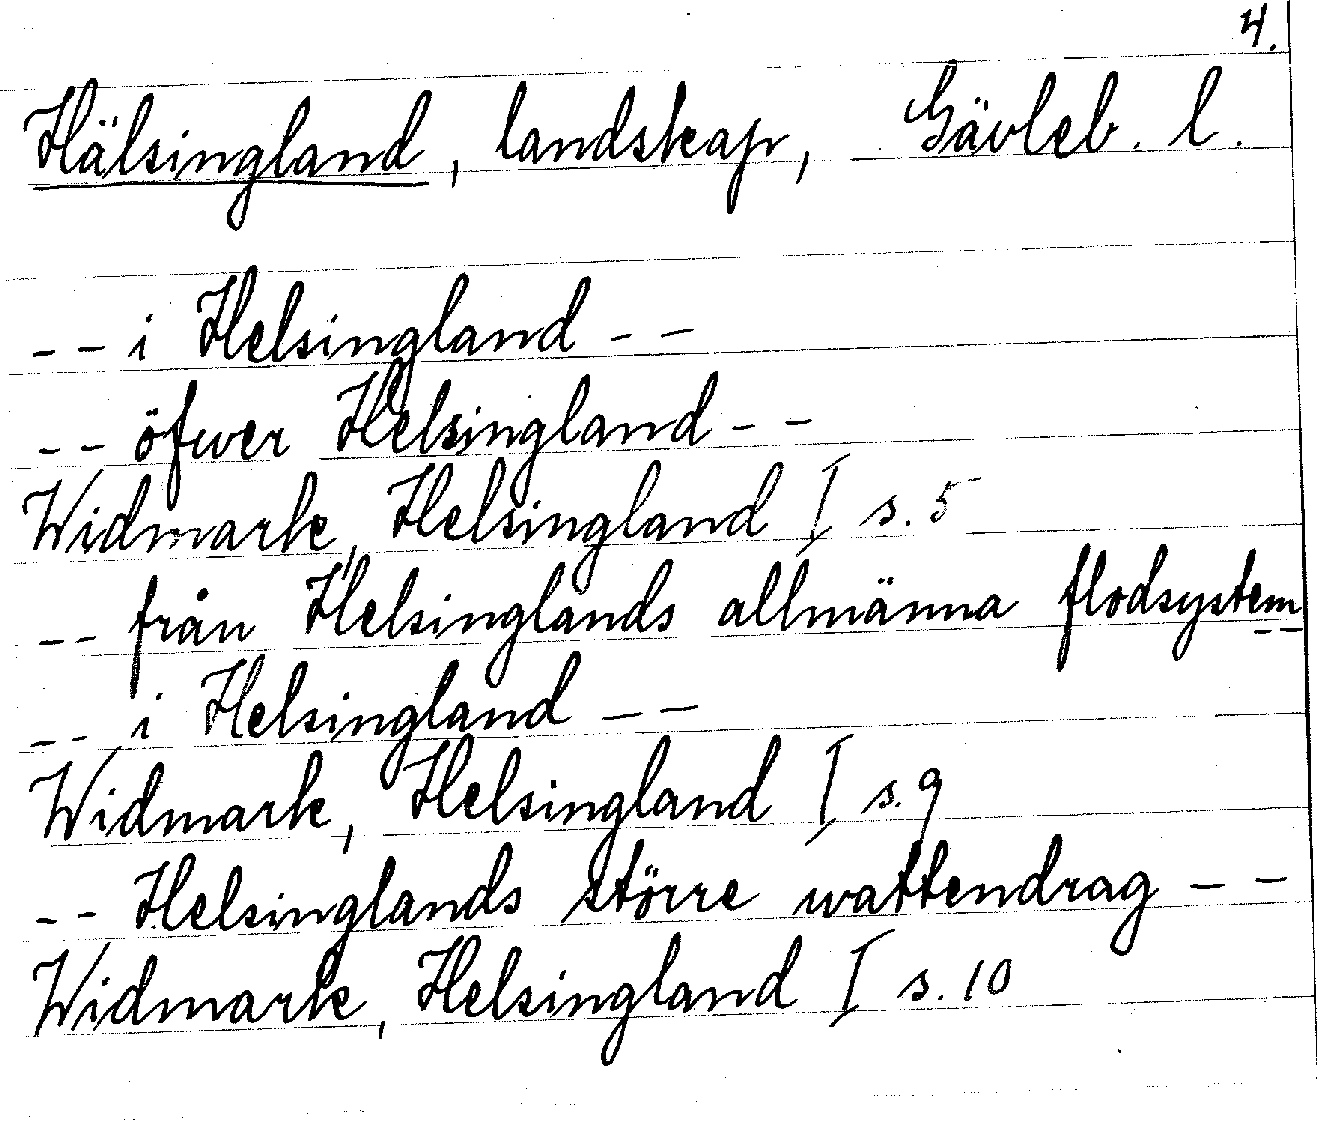 4.
Hälsingland, landskap, Gävleb. l.
-- i Helsingland --
-- öfwer Helsingland --
Widmark, Helsingland I s. 5
-- från Helsinglands allmänna flodsystem --
-- i Helsingland --
Widmark, Helsingland I s. 9
-- Helsinglands större wattendrag --
Widmark, Helsingland I s. 10